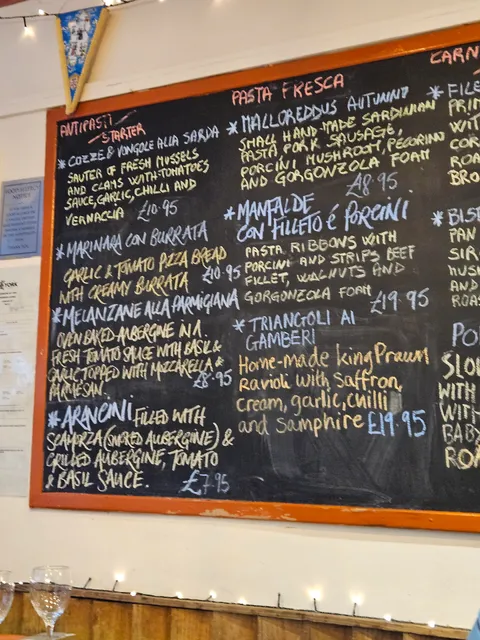 ANTIPASTI
STARTER
* COZZE & VONGOLE ALLA SARDA
SAUTER OF FRESH MUSSELS
AND CLAMS WITH TOMATOES
SAUCE, GARLIC, CHILLI AND
VERNACCIA £10.95
* MARINARA CON BURRATA
GARLIC & TOMATO PIZZA BREAD
WITH CREAMY BURRATA £10.95
* MELANZANE ALLA PARMIGIANA
OVEN BAKED AUBERGINE IN A
FRESH TOMATO SAUCE WITH BASIL &
GARLIC TOPPED WITH MOZZARELLA &
PARMESAN. £8.95
* ARANCINI FILLED WITH
SCAMORZA (SMOKED AUBERGINE) &
GRILLED AUBERGINE, TOMATO
& BASIL SAUCE. £7.95
PASTA FRESCA
* MALLOREDDUS AUTUNNO
SMALL HAND-MADE SARDINIAN
PASTA PORK SAUSAGE,
PORCINI MUSHROOM, PECORINO
AND GORGONZOLA FOAM
£18.95
* MANFALDE
CON FILLETO é PORCINI
PASTA RIBBONS WITH
PORCINI AND STRIPS BEEF
FILLET, WALNUTS AND
GORGONZOLA FOAM £19.95
* TRIANGOLI AI
GAMBERI
Home-made king Prawn
Ravioli with saffron,
cream, garlic, chilli
and samphire £19.95
CARN
* FILE
PRIM
WIT
COR
ROA
BRO
* BIST
PAN
SIR
MUSH
AND
ROAS
PO
SLO
WITH
WITH
BABY
ROA